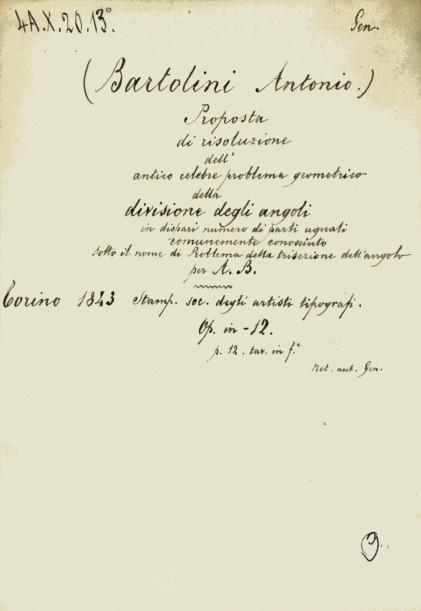 4A.X.20.13°
Gen.
(Bartolini Antonio.)
Proposta
di risoluzione
dell'
antico celebre problema geometrico
della
divisione degli angoli
in dispari numero di parti uguali
comunemente conosciuto
sotto il nome di Problema della trisezione dell'angolo
per A. B.
Torino 1843 Stamp. soc. degli artisti tipografi.
Op. in-12.
p. 12. tav. in f.°
Not. aut. Gen.